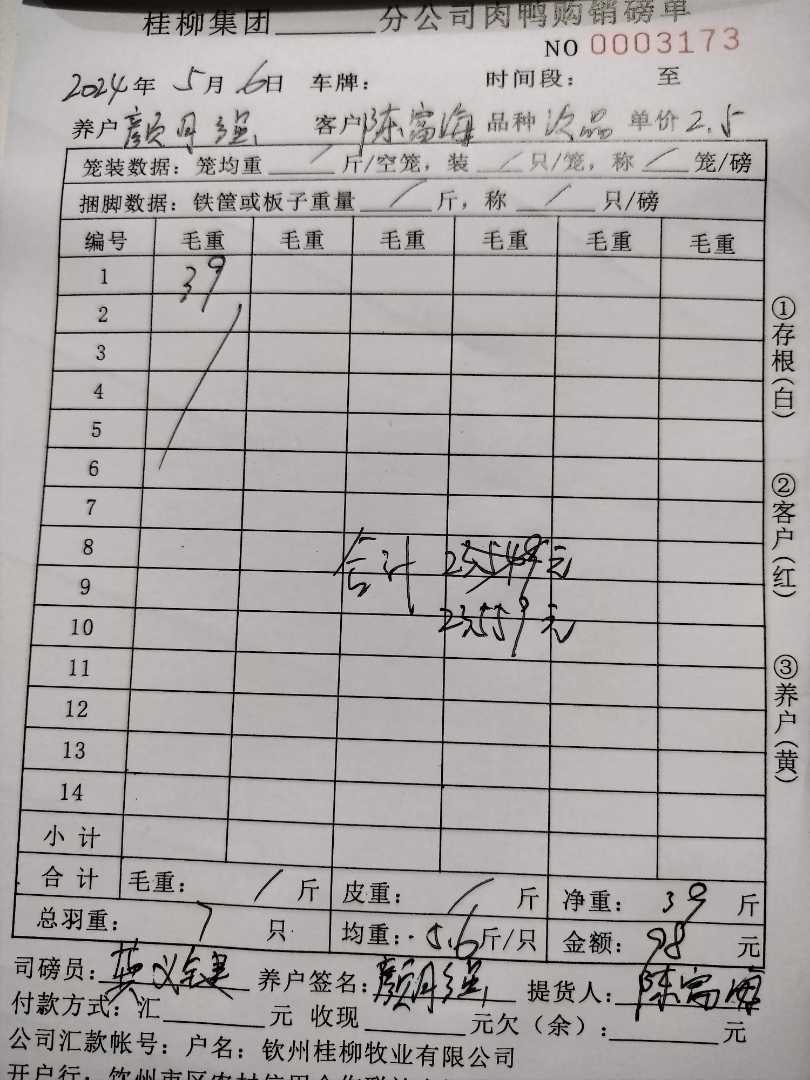 桂柳集团______分公司肉鸭购销磅单
NO 0003173
2024年 5月 6日 车牌： 时间段： 至
养户 颜月强 客户 陈富海 品种 次品 单价 2.5
笼装数据：笼均重 / 斤/空笼，装 / 只/笼，称 / 笼/磅
捆脚数据：铁筐或板子重量 / 斤，称 / 只/磅
编号 毛重 毛重 毛重 毛重 毛重 毛重
1 39
2
3
4
5
6
7
8
合计 25549元
9
23559元
10
11
12
13
14
小计
合计 毛重： / 斤 皮重： / 斤 净重： 39 斤
总羽重： 7 只 均重： 5.6 斤/只 金额： 98 元
司磅员： 养户签名：颜月强 提货人：陈富海
付款方式：汇______元 收现______元欠（余）：______元
公司汇款帐号：户名：钦州桂柳牧业有限公司
开户行：钦州市区农村信用合作联社
①存根（白）
②客户（红）
③养户（黄）